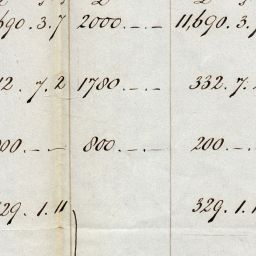 690.3.7 2000.-.- 11,690.3.
12.7.2 1780.-.- 332.7.
00.-.- 800.-.- 200.-.
29.1.11 329.1.1